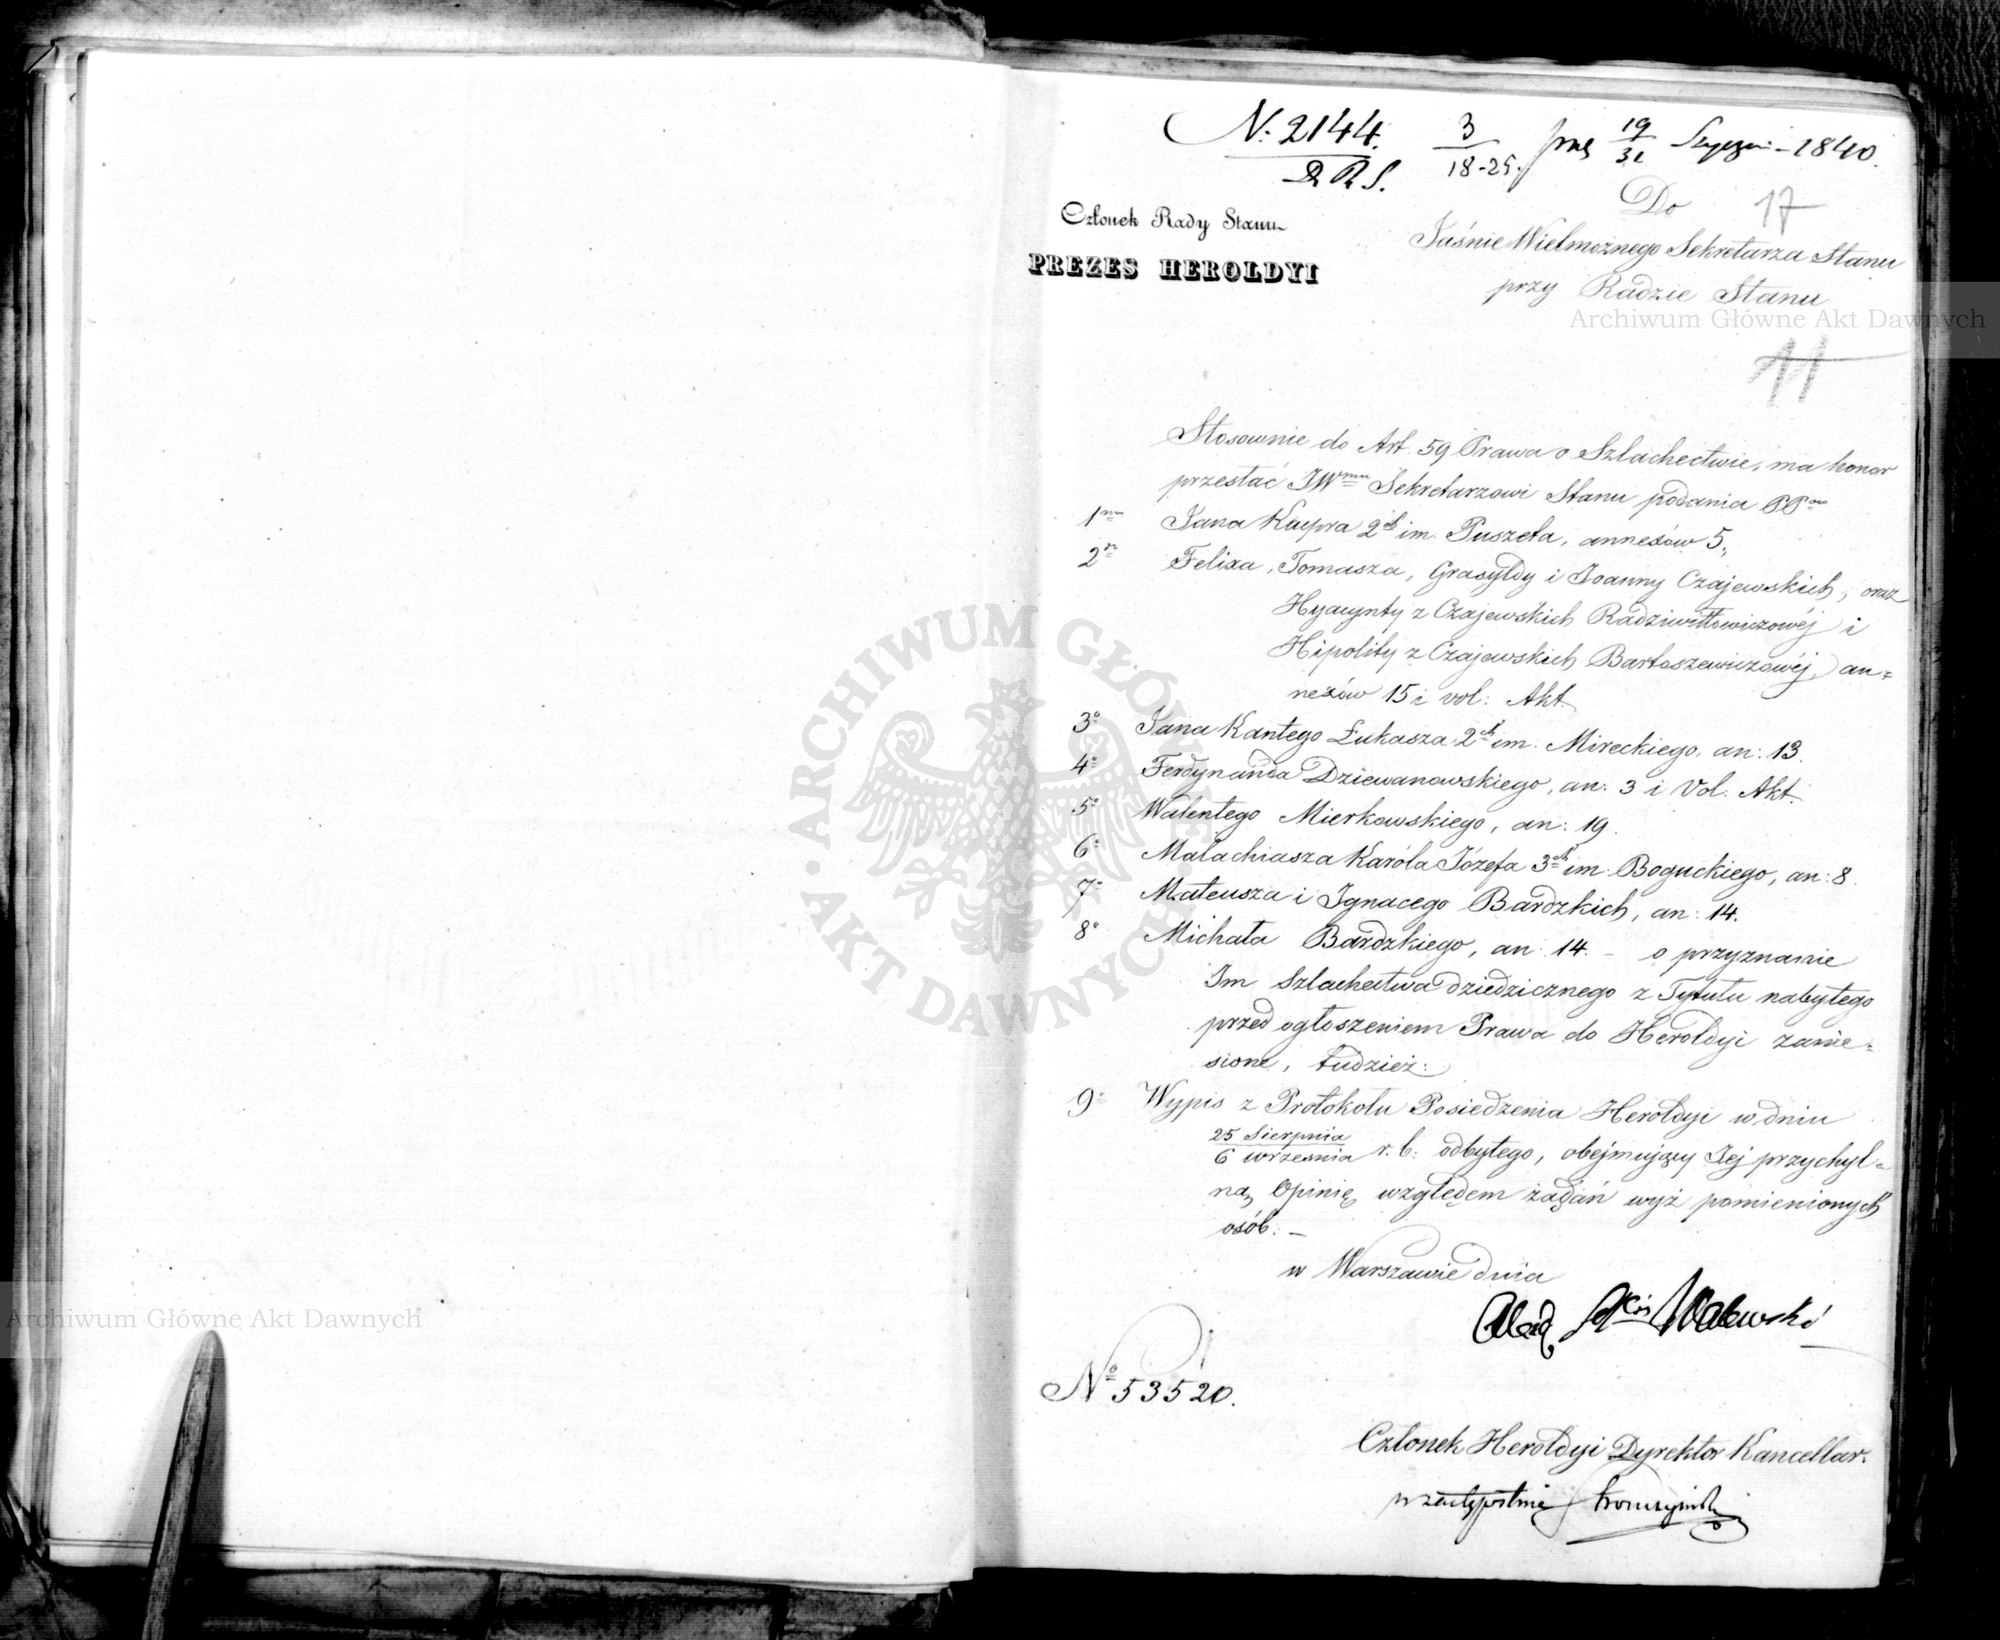 N. 2144. 3 19 Stycznia 1840.
D R S. 18-25. 31
Do 17
Członek Rady Stanu
Jaśnie Wielmożnego Sekretarza Stanu
PREZES HEROLDYI
przy Radzie Stanu
Archiwum Główne Akt Dawnych
11
Stosownie do Art. 59 Prawa o Szlachectwie, ma honor
przesłać JWmu Sekretarzowi Stanu podania PPow
1mo Jana Kacpra 2ch im. Puszeta, annexów 5,
2o Felixa, Tomasza, Grasyldy i Joanny Czajewskich, oraz
Hyacynty z Czajewskich Radziwiłłowiczowéj i
Hipolity z Czajewskich Bartoszewiczowéj, an=
nexów 15 i vol: Akt.
3o Jana Kantego Łukasza 2ch im. Mireckiego, an: 13.
4o Ferdynanda Dziewanowskiego, an: 3 i Vol. Akt.
5o Walentego Mierkowskiego, an: 19.
6o Malachiasza Karóla Józefa 3ch im. Boguckiego, an: 8.
7o Mateusza i Ignacego Bardzkich, an: 14.
8o Michała Bardzkiego, an: 14. – o przyznanie
Im Szlachectwa dziedzicznego z Tytułu nabytego
przed ogłoszeniem Prawa do Heroldyi zanie=
sione, tudzież:
9o Wypis z Protokołu Posiedzenia Heroldyi w dniu
25 Sierpnia
6 września r. b. odbytego, obejmujący Jej przychyl=
ną Opinię względem żądań wyż pomienionych
osób. –
w Warszawie dnia
Walewski
No 53520.
Członek Heroldyi Dyrektor Kancellar.
w zastępstwie
ARCHIWUM GŁÓWNE AKT DAWNYCH
Archiwum Główne Akt Dawnych